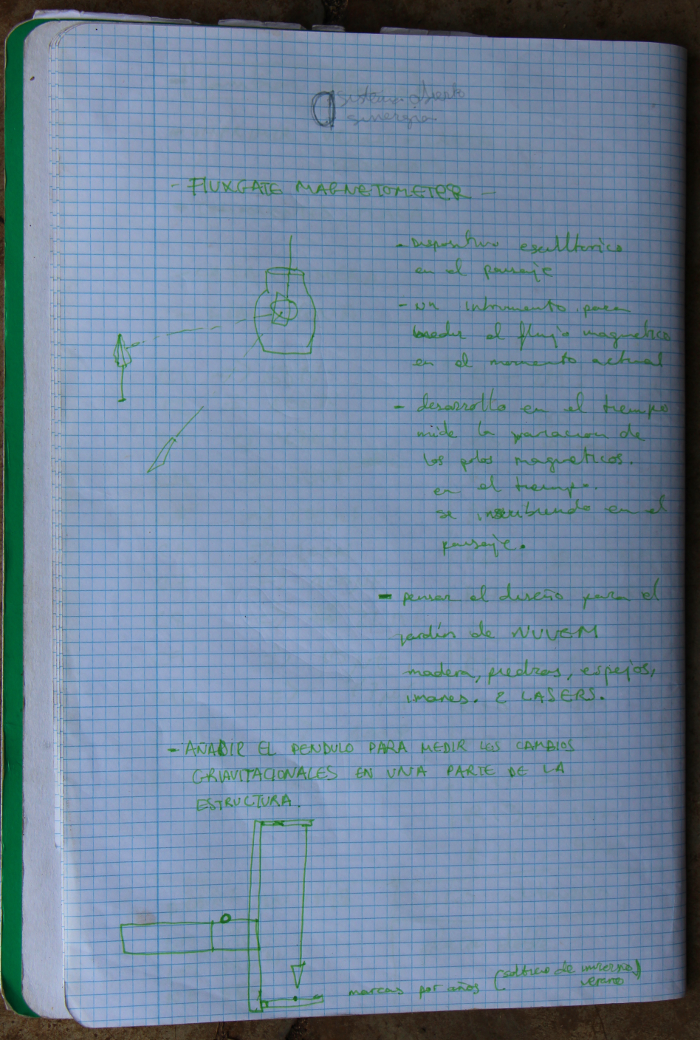 sistema abierto
sinergia
- FLUXGATE MAGNETOMETER -
- Dispositivo escultorico
en el paisaje
- un intrumento para
medir el flujo magnetico
en el momento actual
- desarrollo en el tiempo
mide la variacion de
los polos magneticos.
en el tiempo.
se inscribiendo en el
paisaje.
- pensar el diseño para el
jardín de NUVEM
madera, piedras, espejos,
imanes. 2 LASERS.
- AÑADIR EL PENDULO PARA MEDIR LOS CAMBIOS
GRAVITACIONALES EN UNA PARTE DE LA
ESTRUCTURA.
marcas por años (solticio de invierno)
verano